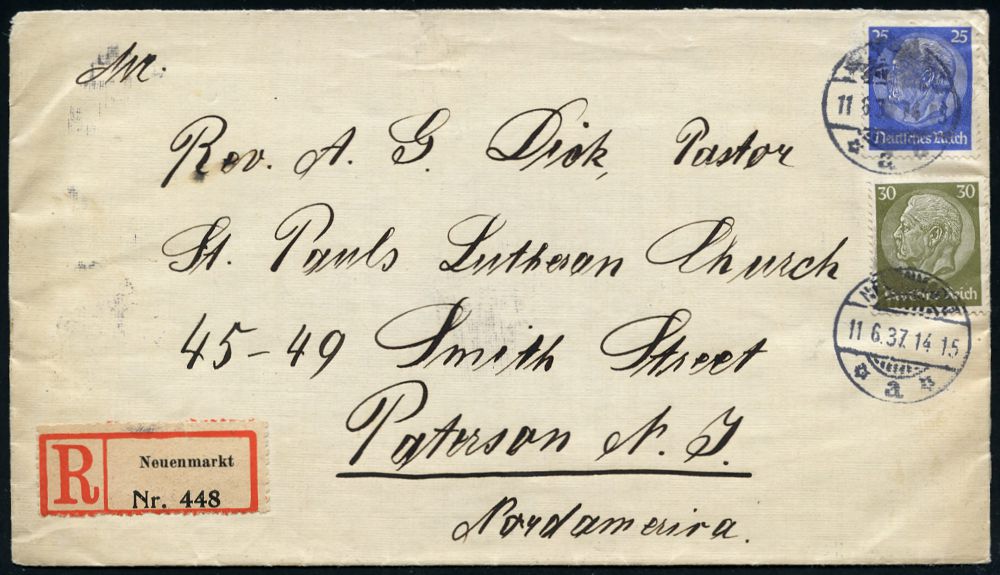 Mr.
Rev. A. G Dick, Pastor
St. Pauls Lutheran Church
45-49 Smith Street
Paterson N. J.
Nordamerica.
R
Neuenmarkt
Nr. 448
25 25
Deutsches Reich
11 6 37 14
a
30 30
Deutsches Reich
11 6.37.14 15
a